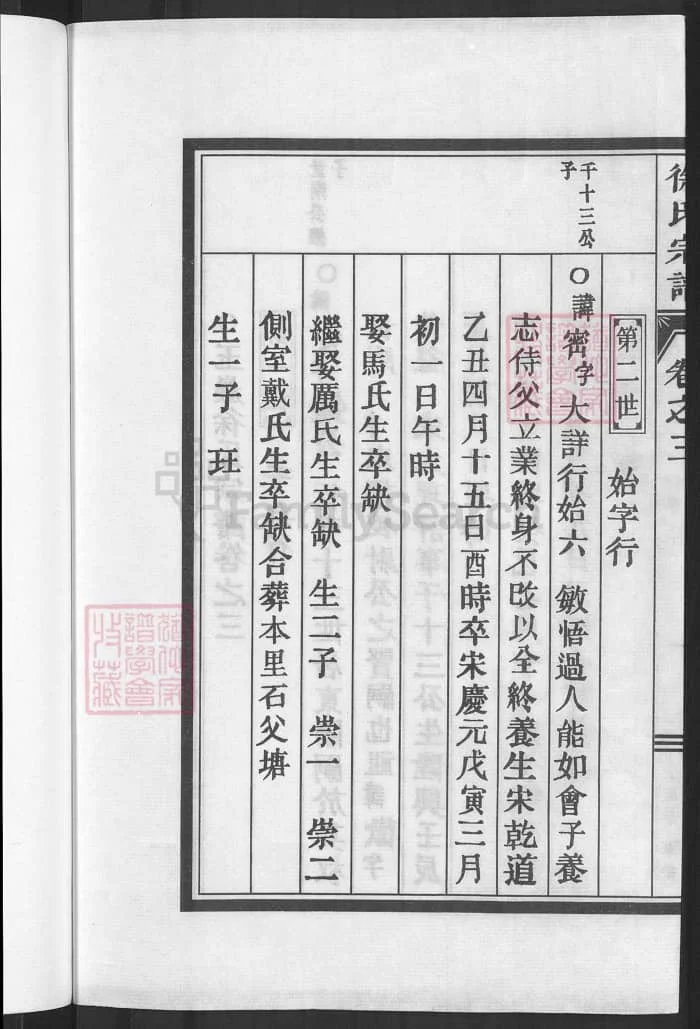 徐氏宗譜
卷之三
第二世 始字行
千十三公
子
○諱密字大詳行始六 敏悟過人能如會子養
志侍父立業終身不改以全終養生宋乾道
乙丑四月十五日酉時卒宋慶元戊寅三月
初一日午時
娶馬氏生卒缺
繼娶厲氏生卒缺 生二子 崇一 崇二
側室戴氏生卒缺合葬本里石父塘
生一子 珏
FamilySearch
譜學會